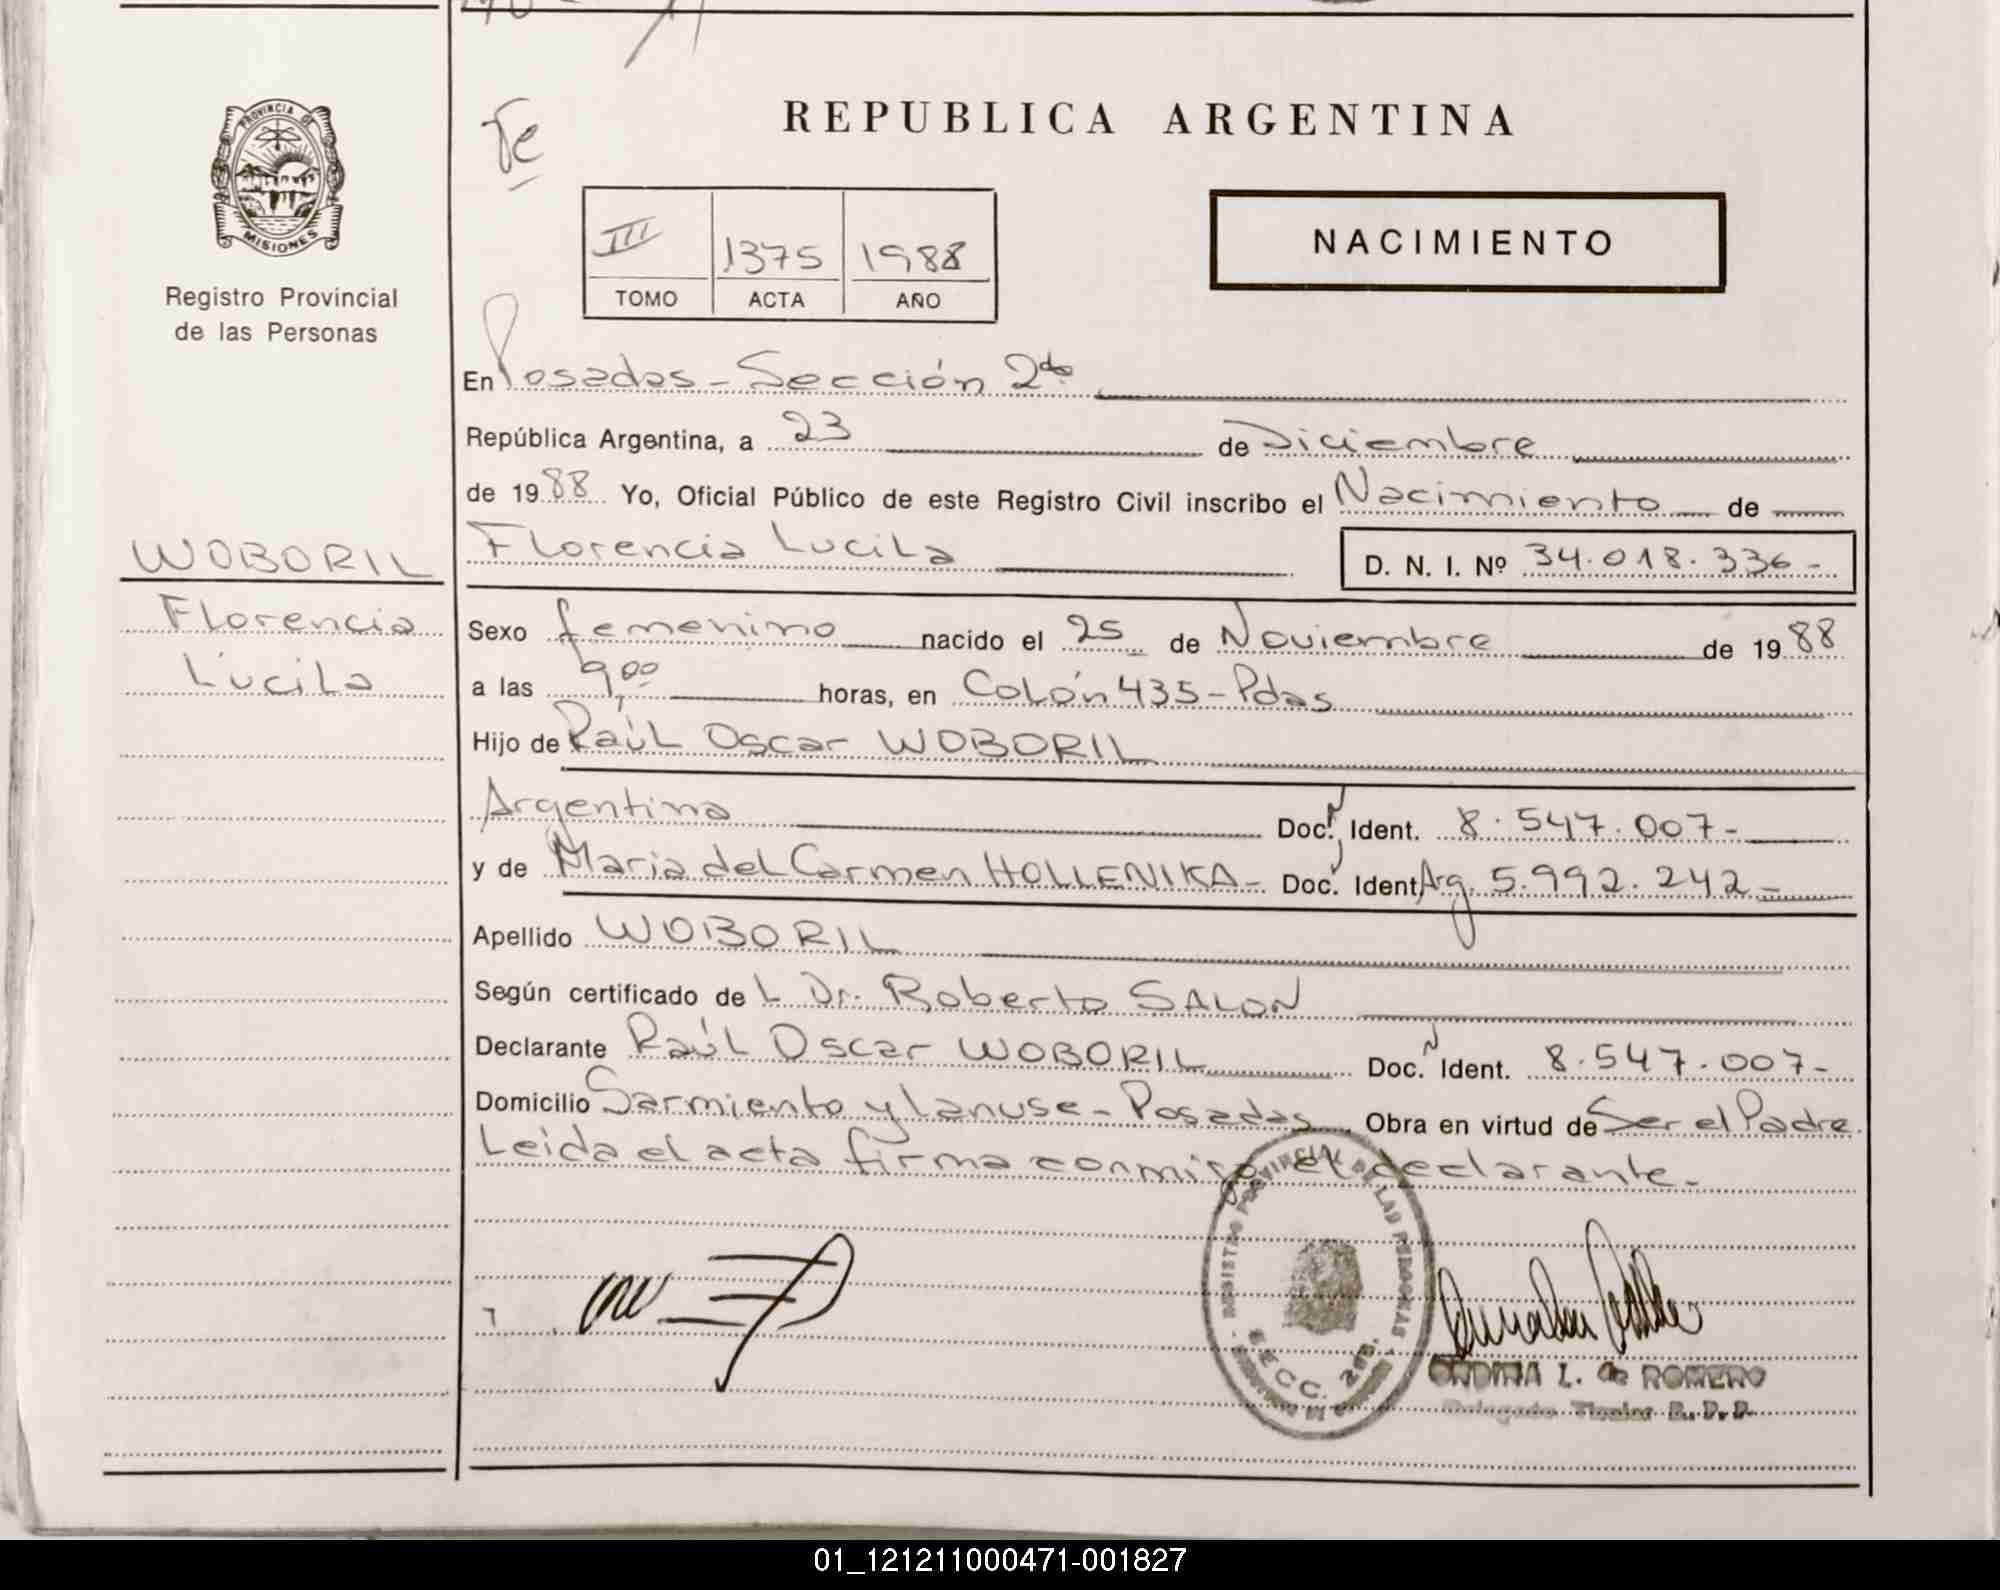 PROVINCIA DE
MISIONES
Registro Provincial
de las Personas
WOBORIL
Florencia
Lucila
REPUBLICA ARGENTINA
III 1375 1988
TOMO ACTA AÑO
NACIMIENTO
En Posadas - Sección 2da
República Argentina, a 23 de Diciembre
de 1988 Yo, Oficial Público de este Registro Civil inscribo el Nacimiento de
Florencia Lucila D. N. I. Nº 34.018.336-
Sexo femenino nacido el 25 de Noviembre de 1988
a las 9,00 horas, en Colón 435 - Pdas
Hijo de Raúl Oscar WOBORIL
Argentina Doc. Ident. 8.547.007-
y de Maria del Carmen HOLLENIKA - Doc. Ident Arg. 5.992.242-
Apellido WOBORIL
Según certificado de L Dr. Roberto SALON
Declarante Raúl Oscar WOBORIL Doc. Ident. 8.547.007-
Domicilio Sarmiento y Lanuse - Posadas Obra en virtud de Ser el Padre
Leida el acta firma conmigo el declarante.
REGISTRO PROVINCIAL DE LAS PERSONAS
SECC. 2da.
ONDINA L. de ROMERO
Delegado Titular R. P. P.
01_121211000471-001827